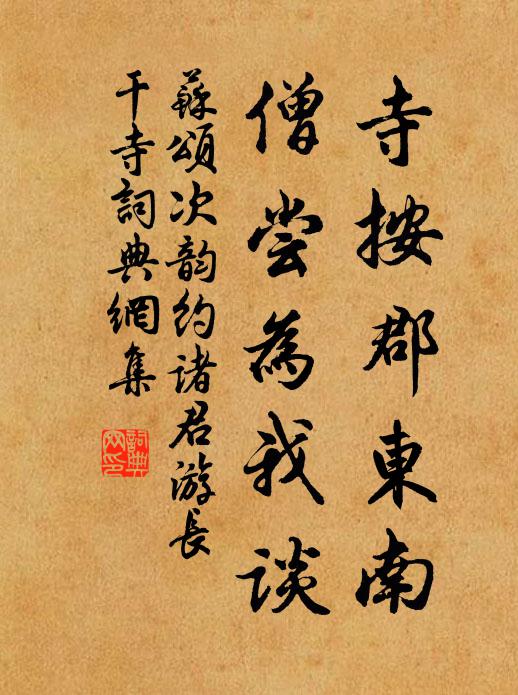 寺按郡東南
僧尝為我談
蘇頌次韵約諸君游長
干寺詞典網集
詞典网印